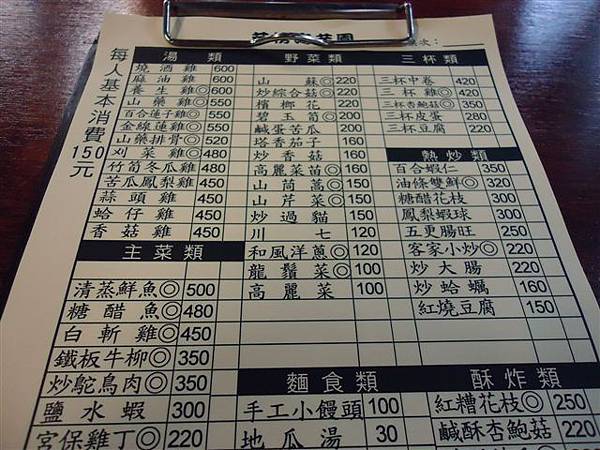 每人基本消費
150元
湯類
燒酒雞 600
麻油雞 600
養生雞◎ 600
山藥雞◎ 550
百合蓮子雞◎ 550
金線蓮雞◎ 550
山藥排骨◎ 520
刈菜雞◎ 480
竹筍冬瓜雞 480
苦瓜鳳梨雞 450
蒜頭雞 450
蛤仔雞 450
香菇雞 450
主菜類
清蒸鮮魚◎ 500
糖醋魚◎ 480
白斬雞◎ 450
鐵板牛柳◎ 350
炒鴕鳥肉◎ 350
鹽水蝦 300
宮保雞丁◎ 220
野菜類
山蘇◎ 220
炒綜合菇◎ 220
檳榔花 220
碧玉筍◎ 200
鹹蛋苦瓜 200
塔香茄子 160
炒香菇 160
高麗菜苗◎ 160
山茼蒿◎ 150
山芹菜◎ 150
炒過貓 150
川七 120
和風洋蔥◎ 120
龍鬚菜◎ 100
高麗菜 100
麵食類
手工小饅頭 100
地瓜湯 30
三杯類
三杯中卷 420
三杯雞◎ 420
三杯杏鮑菇◎ 350
三杯皮蛋 280
三杯豆腐 220
熱炒類
百合蝦仁 350
油條雙鮮◎ 320
糖醋花枝 300
鳳梨蝦球 300
五更腸旺 250
客家小炒◎ 220
炒大腸 220
炒蛤蠣 160
紅燒豆腐 150
酥炸類
紅糟花枝◎ 250
鹹酥杏鮑菇 220